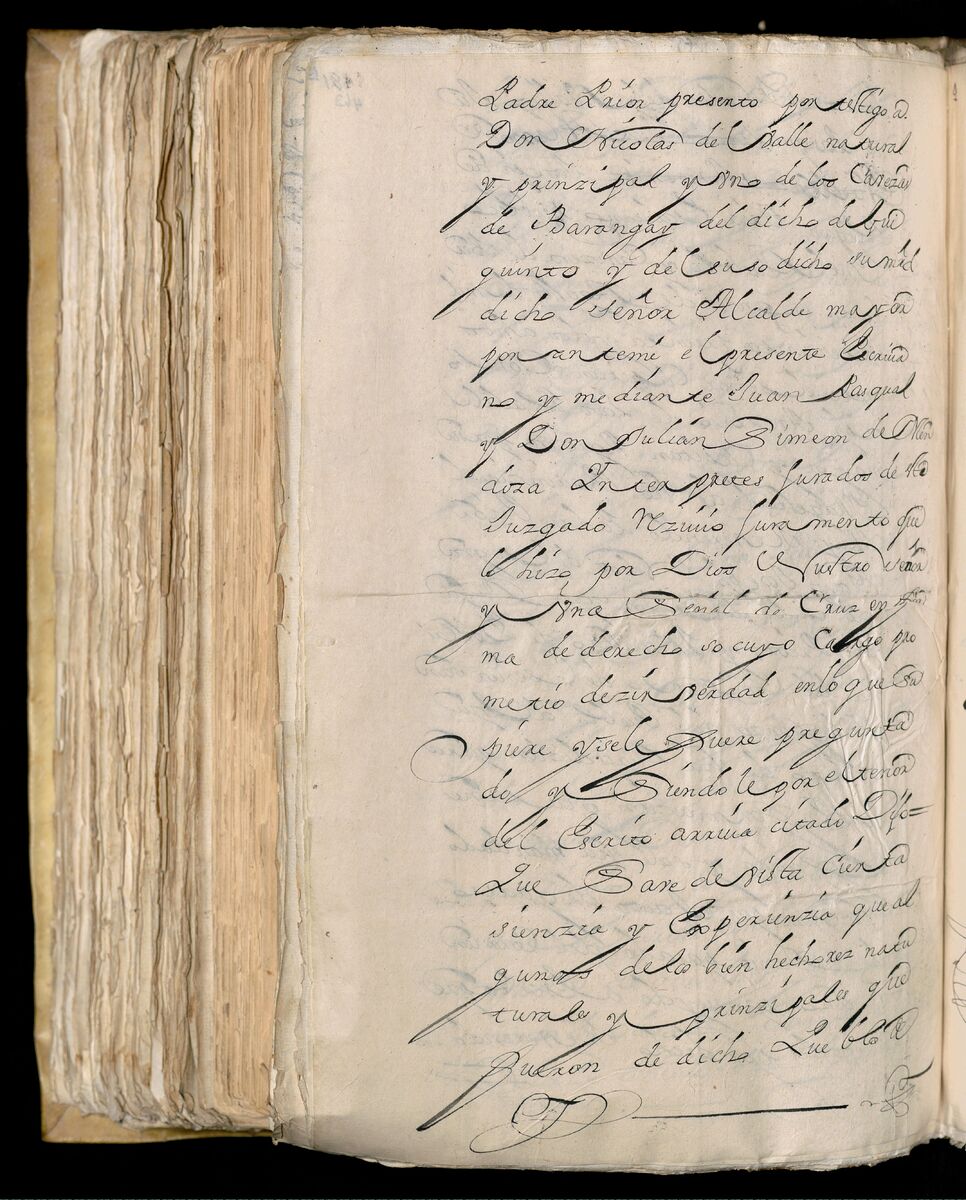 Padre Prior presento por testigo a
Don Nicolas de Valle natural
y prinzipal y uno de los Cavezas
de Barangay del dicho de
quinto y del suso dicho su md
dicho señor Alcalde mayor
por antemi el presente Escriva
no y mediante Juan Pasqual
y Don Julian Simeon de Men
doza Ynterpretes Jurados de este
Juzgado Rzivio Juramento que
lo hizo por Dios Nuestro señor
y una Señal de Cruz en for
ma de derecho so cuyo Cargo pro
metio dezir verdad en lo que Su
piere y se le fuere pregunta
do y Siendole por el tenor
del Escrito arriva citado Dijo=
Que Save de vista Cierta
sienzia y Experienzia que al
gunos de los bien hechorez natu
turales y prinzipales que
fueron de dicho Pueblo de